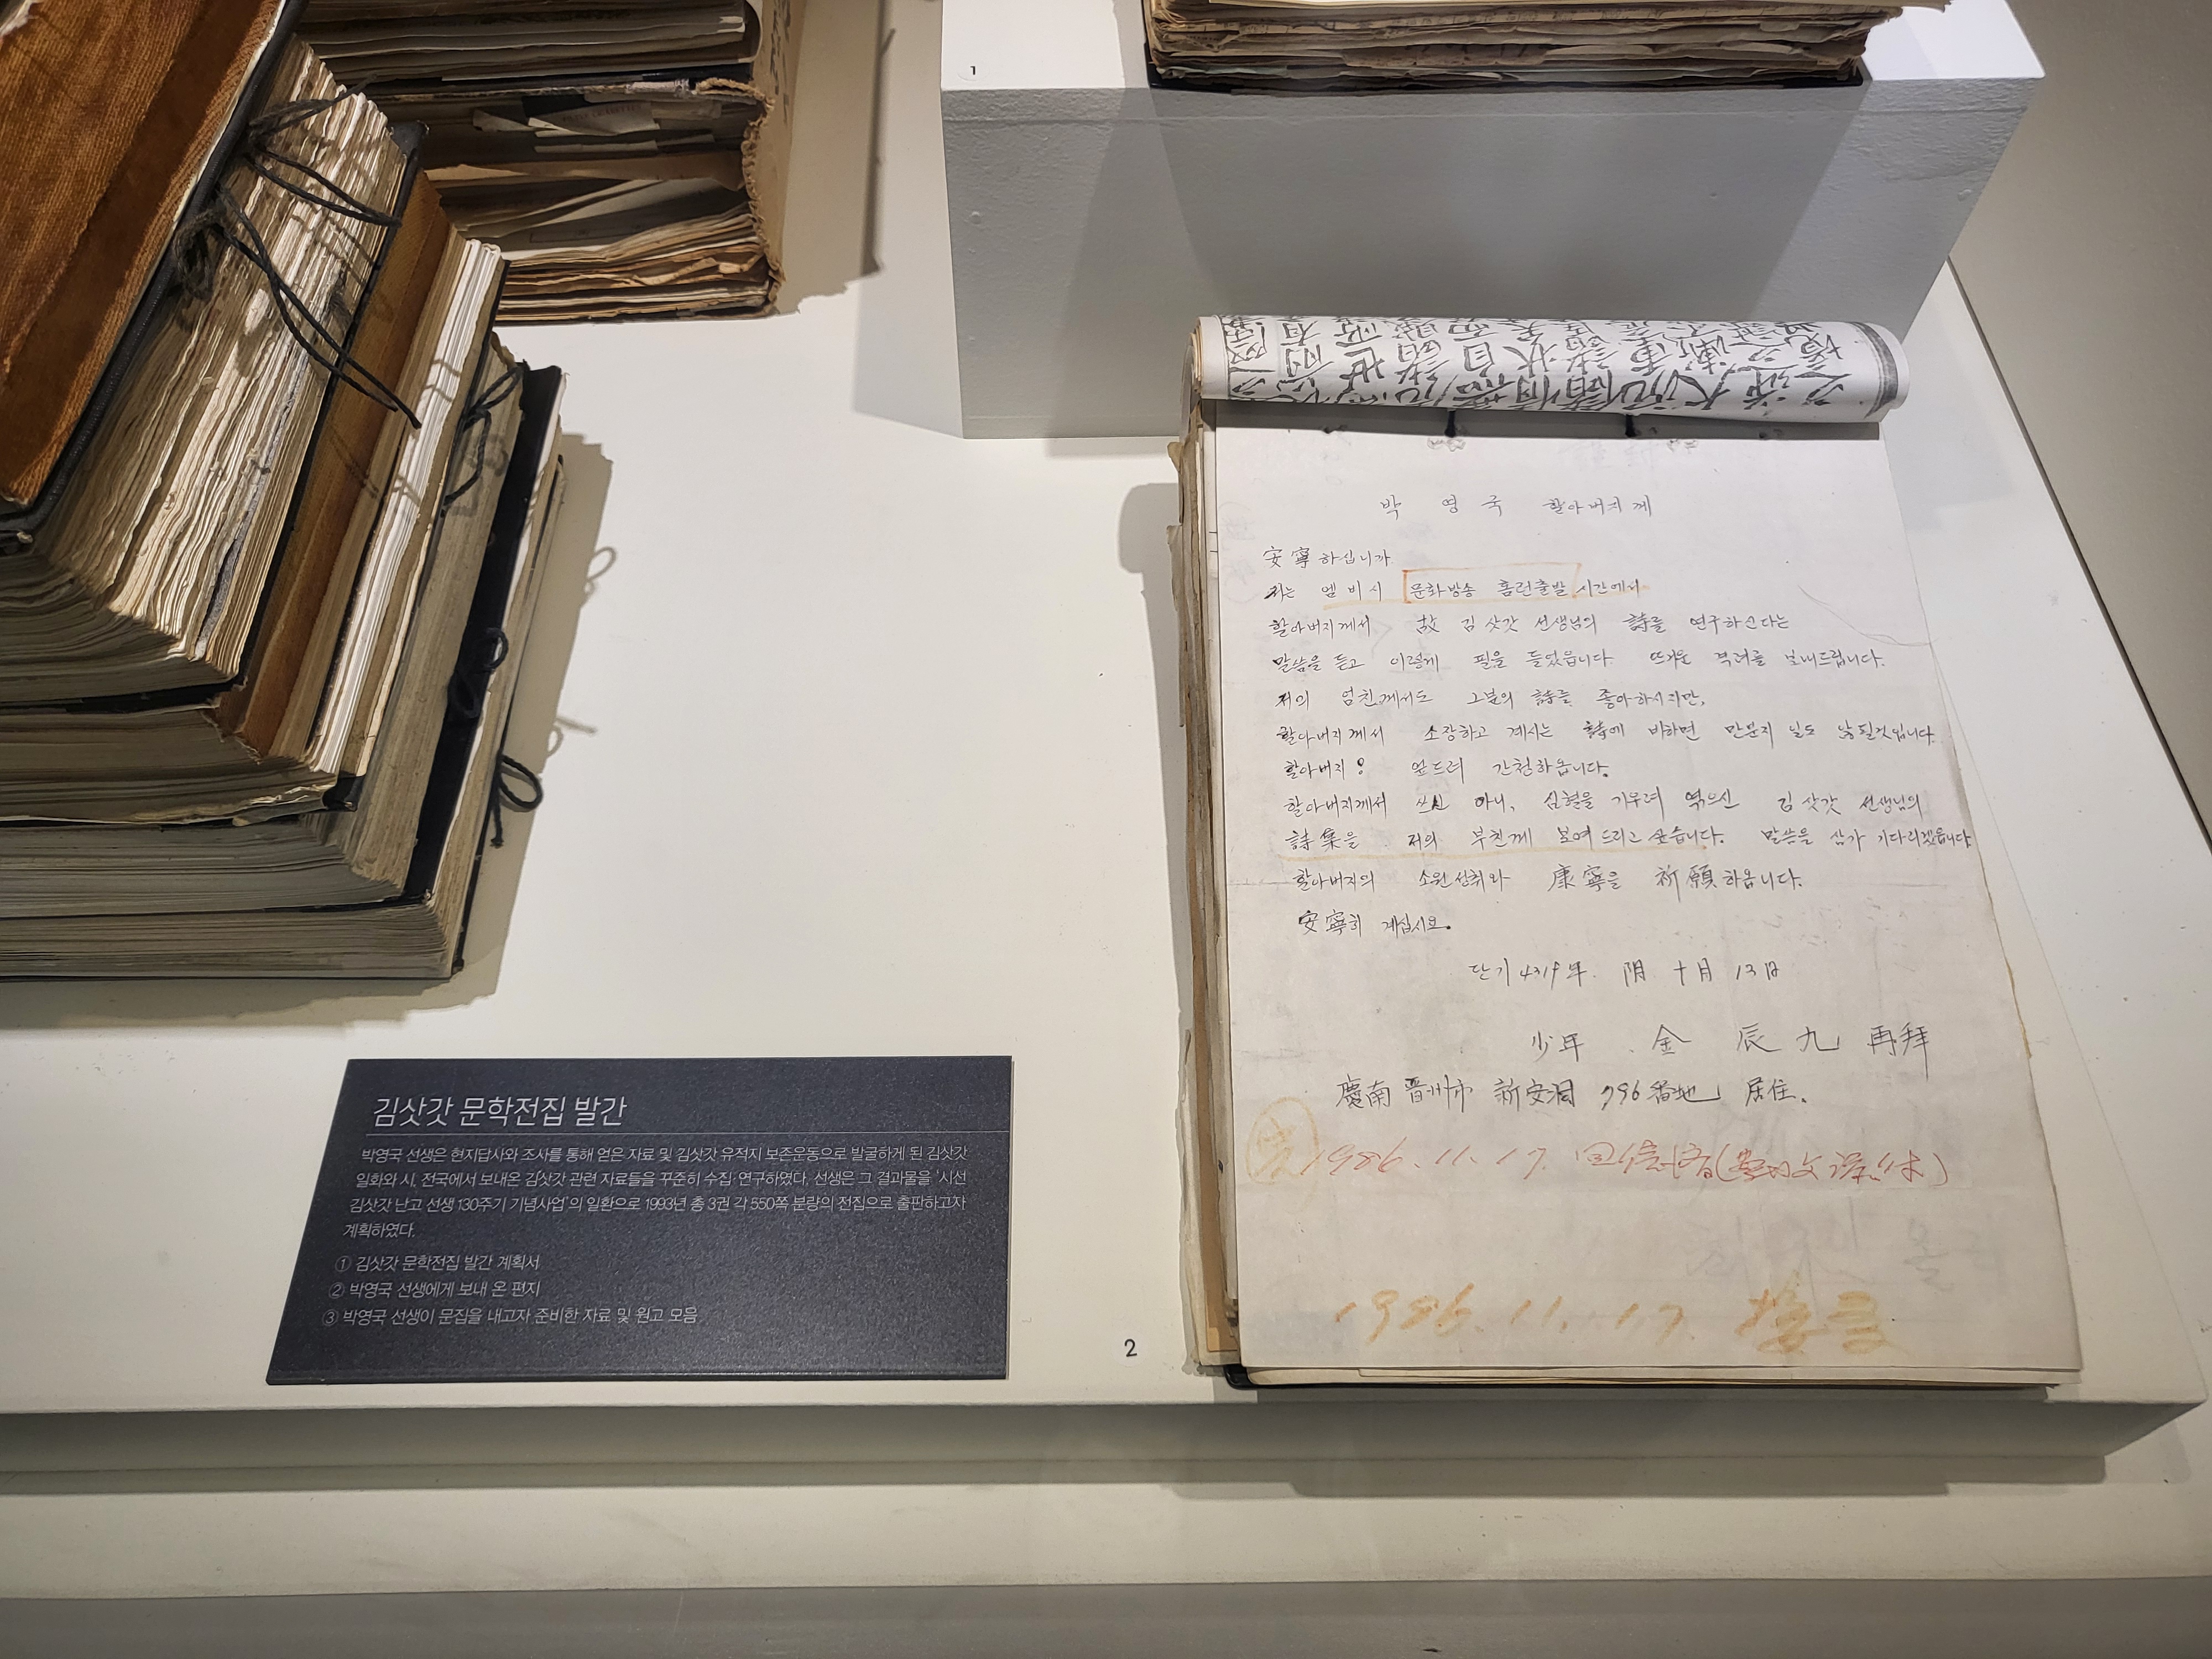 1
박 영 국 할아버지께
安寧하십니까
저는 엠비시 문화방송 홈런출발 시간에서
할아버지께서 故 김삿갓 선생님의 詩를 연구하신다는
말씀을 듣고 이렇게 필을 들었읍니다. 뜨거운 격려를 보내드립니다.
저의 엄친께서도 그분의 詩를 좋아하시지만,
할아버지께서 소장하고 계시는 詩에 비하면 만분지 일도 않될것입니다.
할아버지! 엎드려 간청하옵니다.
할아버지께서 쓰신 아니, 심혈을 기우려 엮으신 김삿갓 선생님의
詩集을 저의 부친께 보여 드리고 싶습니다. 말씀을 삼가 기다리겠읍니다
할아버지의 소원성취와 康寧을 祈願하옵니다.
安寧히 계십시요.
단기 4319年. 阴 十月 13日
少年 金 辰 九 再拜
慶南 晋州市 新安洞 796番地 居住.
1986. 11. 17.
1986. 11. 17.
2
김삿갓 문학전집 발간
박영국 선생은 현지답사와 조사를 통해 얻은 자료 및 김삿갓 유적지 보존운동으로 발굴하게 된 김삿갓
일화와 시, 전국에서 보내온 김삿갓 관련 자료들을 꾸준히 수집·연구하였다. 선생은 그 결과물을 '시선
김삿갓 난고 선생 130주기 기념사업'의 일환으로 1993년 총 3권 각 550쪽 분량의 전집으로 출판하고자
계획하였다.
① 김삿갓 문학전집 발간 계획서
② 박영국 선생에게 보내 온 편지
③ 박영국 선생이 문집을 내고자 준비한 자료 및 원고 모음